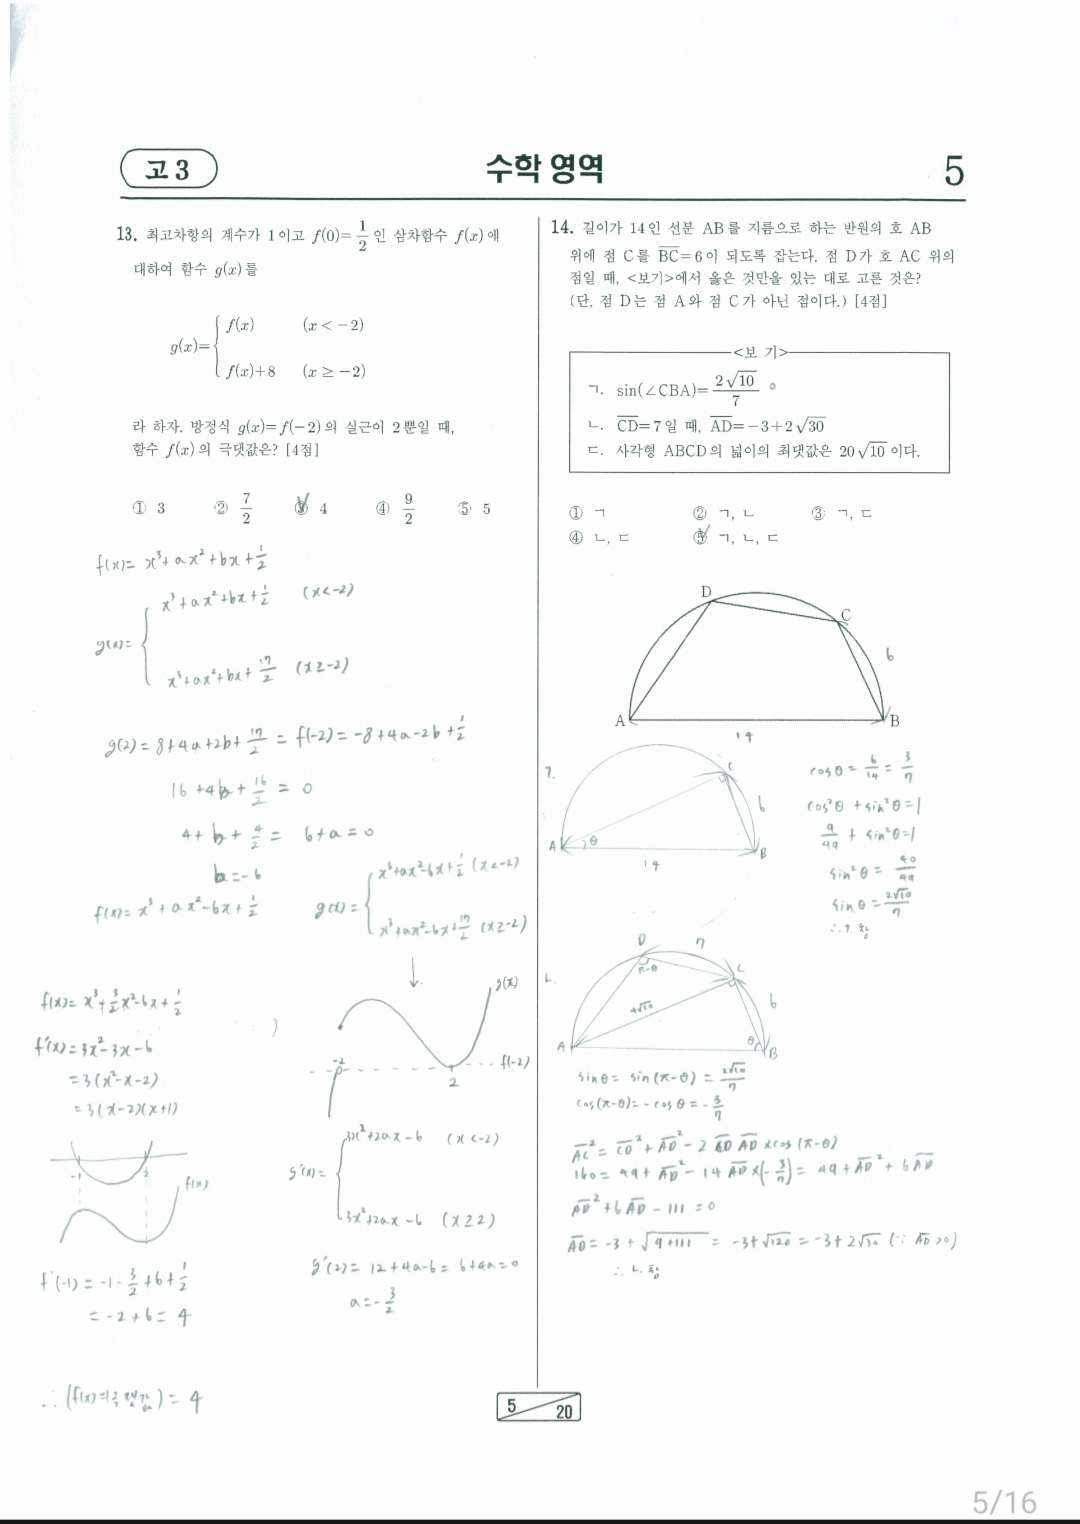 고 3
수학 영역
5
13. 최고차항의 계수가 1이고 f(0)=1/2인 삼차함수 f(x)에
대하여 함수 g(x)를
g(x)={ f(x) (x<-2)
f(x)+8 (x≥-2)
라 하자. 방정식 g(x)=f(-2)의 실근이 2뿐일 때,
함수 f(x)의 극댓값은? [4점]
① 3 ② 7/2 ③ 4 ④ 9/2 ⑤ 5
f(x)= x³+ax²+bx+1/2
g(x)= { x³+ax²+bx+1/2 (x<-2)
x³+ax²+bx+17/2 (x≥-2)
g(2)=8+4a+2b+17/2=f(-2)=-8+4a-2b+1/2
16+4b+16/2=0
4+b+4/2= 6+a=0
b=-6
f(x)=x³+ax²-6x+1/2
g(x)= { x³+ax²-6x+1/2 (x<-2)
x³+ax²-6x+17/2 (x≥-2)
g(x)
-2
f(-2)
2
g'(x)= { 3x²+2ax-6 (x<-2)
3x²+2ax-6 (x≥2)
g'(2)=12+4a-6=6+4a=0
a=-3/2
f(x)=x³+3/2x²-6x+1/2
f'(x)=3x²-3x-6
=3(x²-x-2)
=3(x-2)(x+1)
-1 2
f(x)
f'(-1)=-1-3/2+6+1/2
=-2+6=4
∴(f(x)의극댓값)=4
14. 길이가 14인 선분 AB를 지름으로 하는 반원의 호 AB
위에 점 C를 BC=6이 되도록 잡는다. 점 D가 호 AC 위의
점일 때, <보기>에서 옳은 것만을 있는 대로 고른 것은?
(단, 점 D는 점 A와 점 C가 아닌 점이다.) [4점]
<보 기>
ㄱ. sin(∠CBA)=2√10/7
ㄴ. CD=7일 때, AD=-3+2√30
ㄷ. 사각형 ABCD의 넓이의 최댓값은 20√10이다.
① ㄱ ② ㄱ, ㄴ ③ ㄱ, ㄷ
④ ㄴ, ㄷ ⑤ ㄱ, ㄴ, ㄷ
D
C
6
A
B
14
ㄱ.
C
6
A θ B
14
cosθ=6/14=3/7
cos²θ+sin²θ=1
9/49+sin²θ=1
sin²θ=40/49
sinθ=2√10/7
∴ㄱ.참
ㄴ.
D 7
π-θ C
4√10 6
A θ B
sinθ=sin(π-θ)=2√10/7
cos(π-θ)=-cosθ=-3/7
AC²=CD²+AD²-2CD AD×cos(π-θ)
160=49+AD²-14AD×(-3/7)=49+AD²+6AD
AD²+6AD-111=0
AD=-3+√9+111=-3+√120=-3+2√30 (∵AD>0)
∴ㄴ.참
5
20
5/16